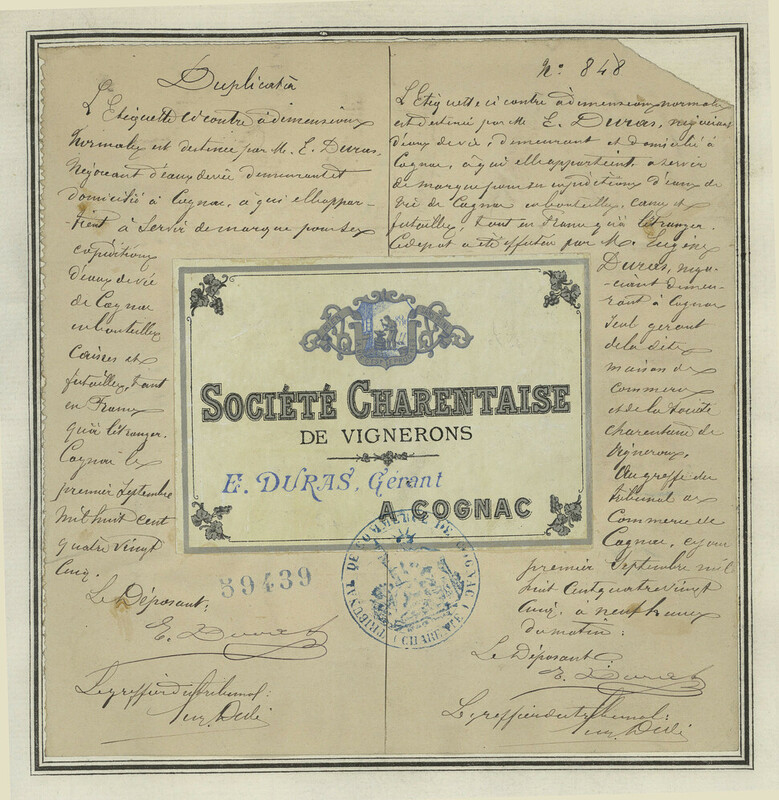 Duplicata
L'Etiquette ci contre à dimensions
normales est destinée par M. E. Duras,
Négociant d'eaux de vie demeurant et
domicilié à Cognac, à qui elle appar-
-tient à servir de marque pour ses
expéditions
d'eaux de vie
de Cognac
en bouteilles
Caisses et
futailles, tant
en France
qu'à l'étranger.
Cognac le
premier Septembre
Mil huit cent
quatre vingt
Cinq.
Le Déposant:
E. Duras
Le greffier du tribunal:
No. 848
L'Etiquette ci contre à dimensions normales
est destinée par M. E. Duras, négociant
d'eaux de vie, demeurant et domicilié à
Cognac, à qui elle appartient, à servir
de marque pour ses expéditions d'eaux de
vie de Cognac en bouteilles, caisses et
futailles, tant en France qu'à l'étranger.
Ce dépot a été effectué par M. Eugène
Duras, négo-
ciant demeu-
rant à Cognac
Seul gérant
de la dite
maison de
Commerce
et de la Société
charentaise de
Vignerons,
Au greffe du
tribunal de
Commerce de
Cognac, ce jour
premier Septembre mil
huit cent quatre vingt
Cinq, à neuf heures
du matin:
Le Déposant:
E. Duras
Le greffier du tribunal:
SOCIÉTÉ CHARENTAISE
DE VIGNERONS
E. DURAS, Gérant
A COGNAC
59439
TRIBUNAL DE COMMERCE DE COGNAC
(CHARENTE)